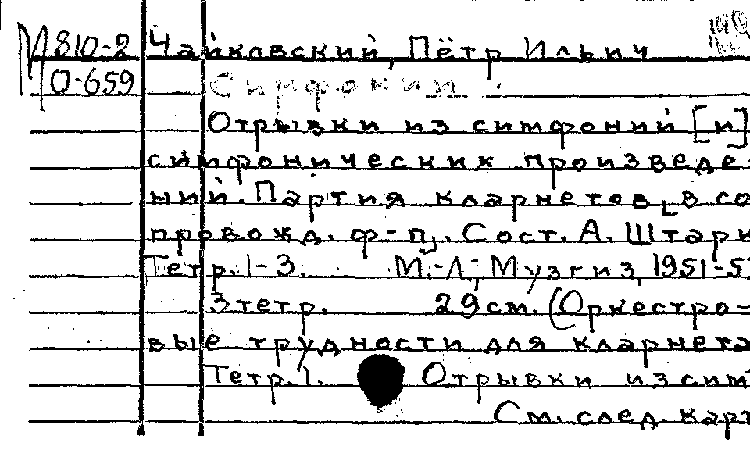 М 810-2 Чайковский, Пётр Ильич
0-659 Симфонии
Отрывки из симфоний [и]
симфонических произведе-
ний. Партия кларнетов, в со
провожд. ф-п. Сост. А. Штарк
Тетр. 1-3. М.-Л., Музгиз, 1951-5
3 тетр. 29 см. (Оркестро-
вые трудности для кларнета
Тетр. 1. Отрывки из сим
См. след. карт